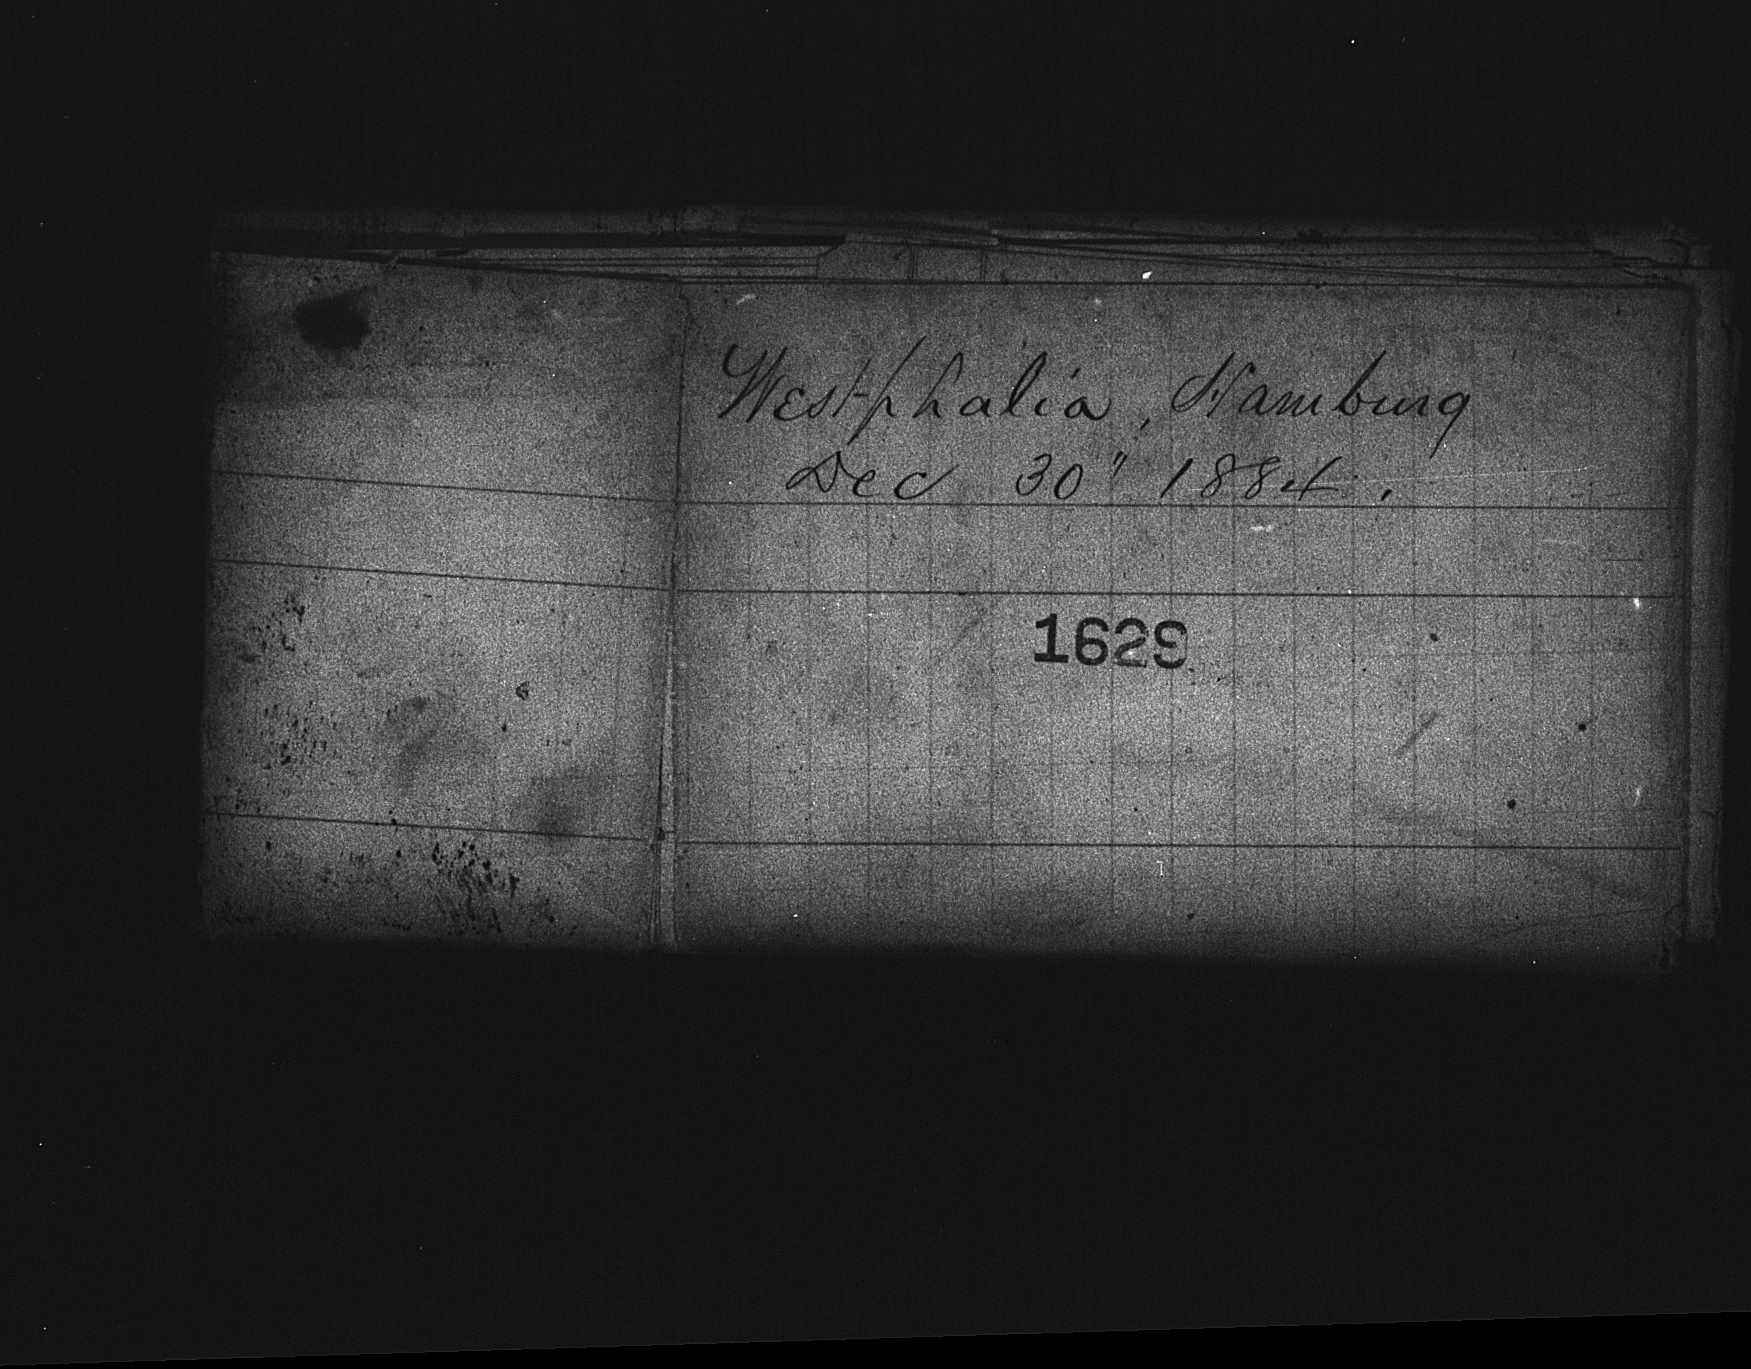 Westphalia, Hamburg
Dec 30" 1884.
1629